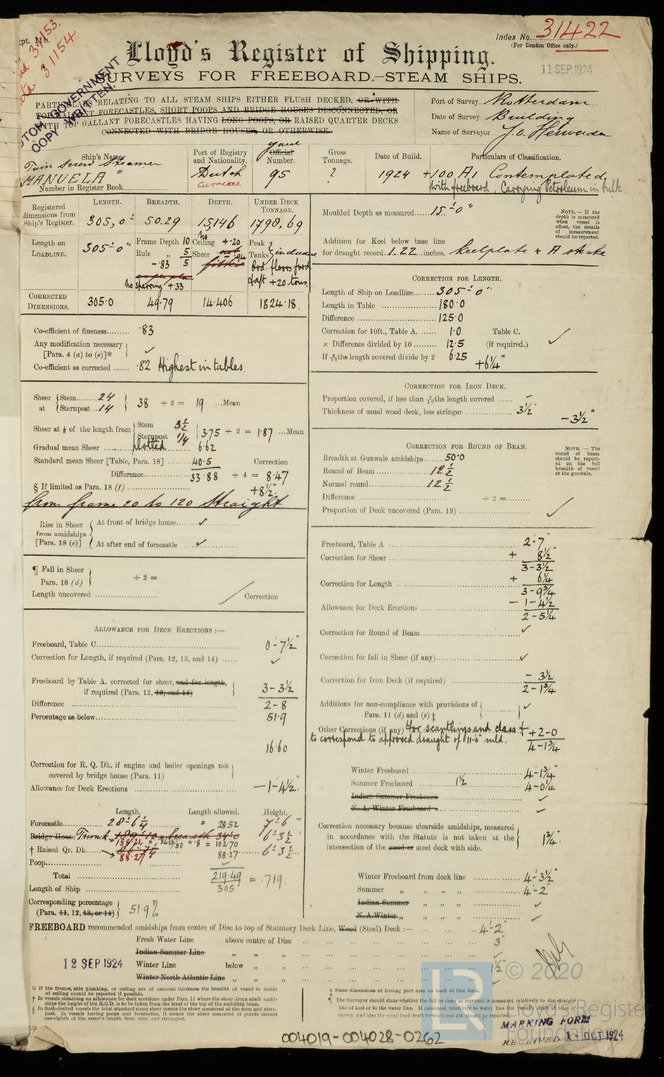 Index No. 31422
(For London Office only.)
11 SEP 1924
Lloyd's Register of Shipping.
SURVEYS FOR FREEBOARD.—STEAM SHIPS.
COPY WRITTEN.
PARTICULARS RELATING TO ALL STEAM SHIPS EITHER FLUSH DECKED, OR WITH
TOP GALLANT FORECASTLES, SHORT POOPS AND BRIDGE HOUSES DISCONNECTED, OR
WITH TOP GALLANT FORECASTLES HAVING LONG POOPS, OR RAISED QUARTER DECKS
CONNECTED WITH BRIDGE HOUSES, OR OTHERWISE.
Port of Survey Rotterdam
Date of Survey Building
Name of Surveyor
Ship's Name
Twin Screw Steamer
"MANUELA"
Number in Register Book
Port of Registry and Nationality.
Dutch
Curacao
Yard
Official Number.
95
Gross Tonnage.
?
Date of Build.
1924
Particulars of Classification.
+100 A1 Contemplated,
with freeboard, Carrying Petroleum in bulk.
Registered dimensions from Ship's Register.
LENGTH. BREADTH. DEPTH. UNDER DECK TONNAGE.
305.0 50.29 15.146 1798.69
Length on LOADLINE. 305.0
Frame Depth 10
Rule „ 5
-.83 5
no sparring +.33
Ceiling +.20
Sheer
Peak Tanks
+20 tons.
CORRECTED DIMENSIONS. 305.0 49.79 14.406 1824.18
Moulded Depth as measured 15'-0"
Addition for Keel below base line
for draught record 1.22 inches. keelplate & A strake
NOTE.—If the depth is measured when vessel is afloat, the details of measurement should be reported.
CORRECTION FOR LENGTH.
Length of Ship on Loadline 305'-0"
Length in Table 180.0
Difference 125.0
Correction for 10ft., Table A. 1.0 Table C.
× Difference divided by 10 12.5 (if required.) ✓
If 6/10ths length covered divide by 2 6.25
+6¼"
Co-efficient of fineness .83
Any modification necessary
[Para. 4 (a) to (e)]* ✓
Co-efficient as corrected .82 Highest in tables
CORRECTION FOR IRON DECK.
Proportion covered, if less than 7/10ths length covered
Thickness of usual wood deck, less stringer 3½
-3½"
Sheer at Stem 24
Sternpost 14
38 ÷ 2 = 19 ...Mean
Sheer at ⅛ of the length from Stem 3½
Sternpost ¼
3.75 ÷ 2 = 1.87 ...Mean
Gradual mean Sheer plotted 6.62
Standard mean Sheer [Table, Para. 18] 40.5 Correction
Difference 33.88 ÷ 4 = 8.47
§ If limited as Para. 18 (f) +8½"
from frame 20 to 120 Straight
Rise in Sheer from amidships [Para. 18 (e)]
At front of bridge house ✓
At after end of forecastle ✓
CORRECTION FOR ROUND OF BEAM.
Breadth at Gunwale amidships 50.0
Round of Beam 12½
Normal round 12½
Difference ÷ 2 =
Proportion of Deck uncovered (Para. 19) ✓
NOTE.—The round of beam should be reported on the full breadth of vessel at the gunwale.
¶ Fall in Sheer
Para. 18 (d) ÷ 2 =
Length uncovered Correction
Freeboard, Table A 2-7
Correction for Sheer + 8½
3-3½
Correction for Length + 6¼
3-9¾
Allowance for Deck Erections - 1-4½
2-5¼
Correction for Round of Beam ✓
Correction for fall in Sheer (if any) ✓
Correction for Iron Deck (if required) - 3½
2-1¾
Additions for non-compliance with provisions of
Para. 11 (d) and (e) ‡ ✓
Other Corrections (if any) for scantlings and class & +2-0
to correspond to approved draught of 11'-0" mld. 4-1¾
ALLOWANCE FOR DECK ERECTIONS:—
Freeboard, Table C 0-7½"
Correction for Length, if required (Para. 12, 13, and 14) ✓
Freeboard by Table A. corrected for sheer, and for length,
if required (Para. 12, 13, and 14) 3-3½
Difference 2-8
Percentage as below 51.9
16.60
Correction for R. Q. Dk. if engine and boiler openings not
covered by bridge house (Para. 11)
Allowance for Deck Erections -1-4½"
Length. Length allowed. Height.
Forecastle 28'-6¼ = 28.52 7'-6"
Bridge House Trunk = 102.70 6'-3½
† Raised Qr. Dk. 88.27 88.27 6'-3½
Poop
Total 219.49 = .719
Length of Ship 305
Corresponding percentage
(Para. 11, 12, 13, or 14) 51.9%
Winter Freeboard 4-1¾"
Summer Freeboard 1½ 4-0¼
Indian Summer Freeboard ✓
N. A. Winter Freeboard ✓
Correction necessary because clearside amidships, measured
in accordance with the Statute is not taken at the
intersection of the wood or steel deck with side. 1¾"
Winter Freeboard from deck line 4-3½"
Summer „ „ „ „ 4-2
Indian Summer „ ✓
N. A. Winter „ ✓
FREEBOARD recommended amidships from centre of Disc to top of Statutory Deck Line, Wood (Steel) Deck:— 4-2"
Fresh Water Line above centre of Disc 3
Indian Summer Line „ „
Winter Line below „ 1½
Winter North Atlantic Line „ „
12 SEP 1924
LR © 2020
Lloyd's Register
Foundation
MARKING FORM
RECEIVED 1-OCT 1924
004019-004028-0262